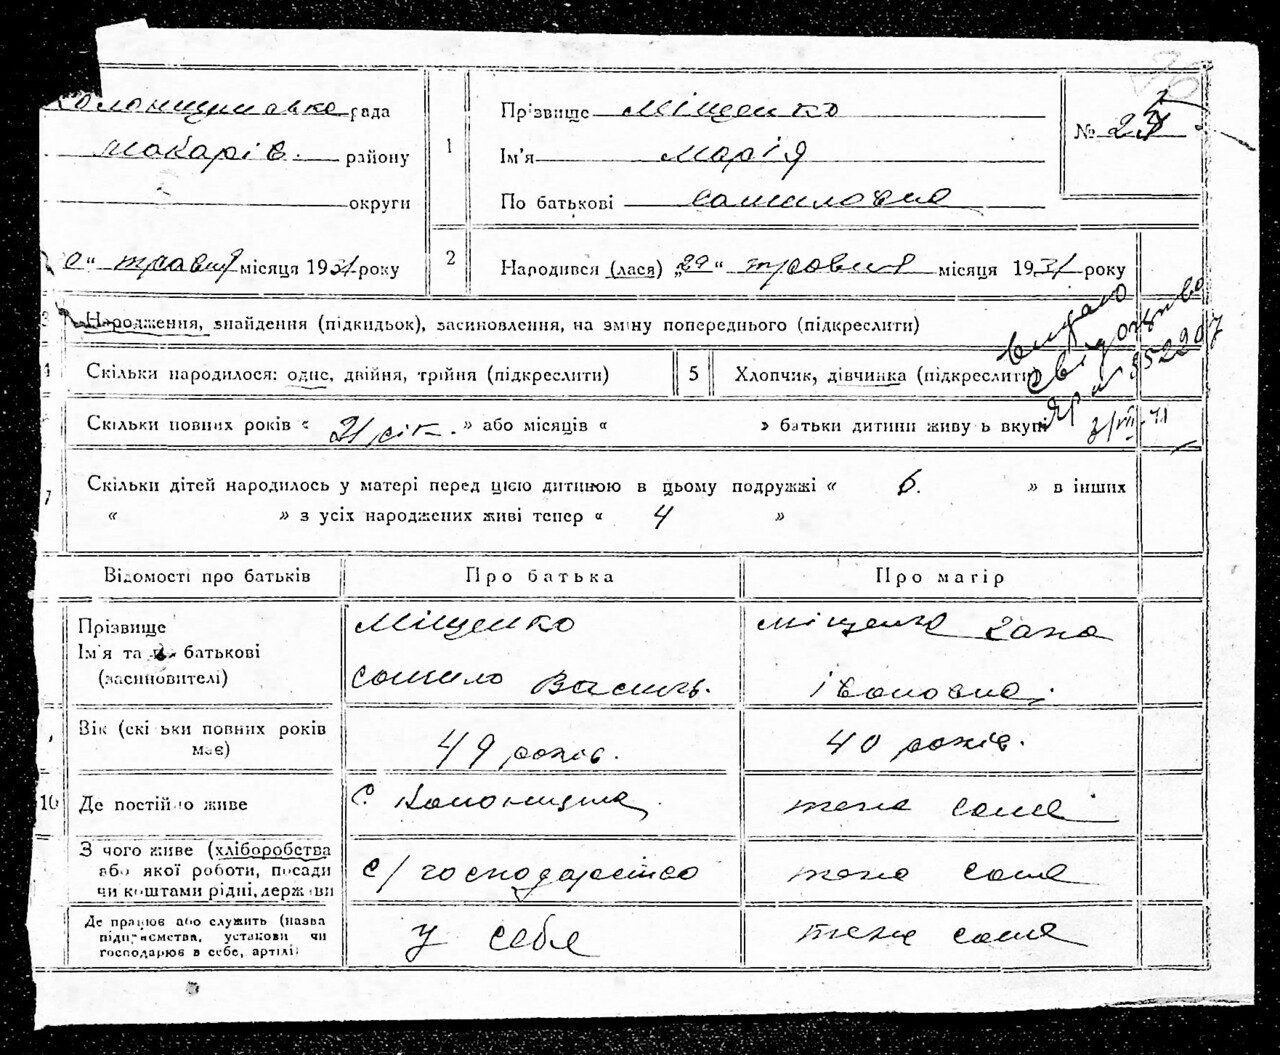 Колонщинська рада
Макарів. району
округи
0" травня місяця 1931 року
1
Прізвище Міщенко
Ім'я Марія
По батькові Самиловна
№ 25
2
Народився (лася) „29" травня місяця 1931 року
3 Народження, знайдення (підкидьок), засиновлення, на зміну попереднього (підкреслити)
4 Скільки народилося: одне, двійня, трійня (підкреслити)
5 Хлопчик, дівчинка (підкреслити)
видано
свідоцтво
952907
3/VII-41
Скільки повних років « 21 рік. » або місяців « » батьки дитини живуть вкупі
7 Скільки дітей народилось у матері перед цією дитиною в цьому подружжі « 6. » в інших
« » з усіх народжених живі тепер « 4 »
Відомості про батьків
Про батька
Про матір
Прізвище
Ім'я та по батькові
(засиновителі)
Міщенко
Самило Василь.
Міщенко Гана
Івановна.
Вік (скільки повних років
має)
49 років.
40 років.
10 Де постійно живе
с. Колонщина
теж саме
З чого живе (хліборобства
або якої роботи, посади
чи коштами рідні, держави
с/господарство
теж саме
Де працює або служить (назва
підприємства, установи чи
господарює в себе, артілі)
у себе
теж саме